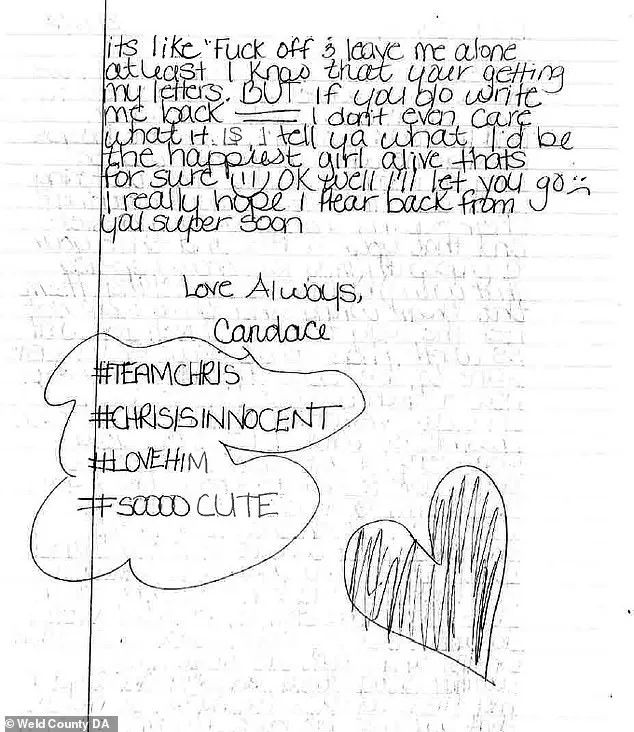 its like "Fuck off & leave me alone
atleast I know that your getting
my letters. BUT if you do write
me back — I don't even care
what it is, I tell ya what, I'd be
the happiest girl alive thats
for sure !!!! OK well I'll let you go :(
I really hope I Hear back from
ya! super soon
Love Always,
Candace
#TEAMCHRIS
#CHRISISINNOCENT
#LOVEHIM
#SOOOO CUTE
© Weld County DA